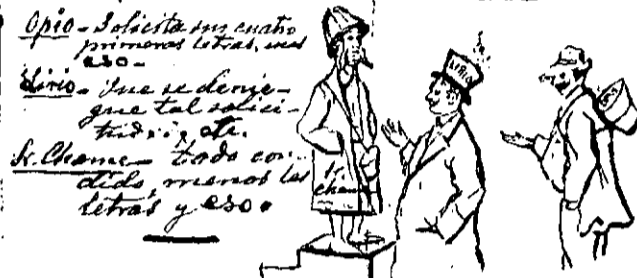 Opio - Solicita sus cuatro
primeras letras, mas
eso -
Lirio - Que se denie-
gue tal solici-
tud i etc.
Sr. Chame - Todo con-
dido, menos las
letras y eso.
LIRIO
Chame